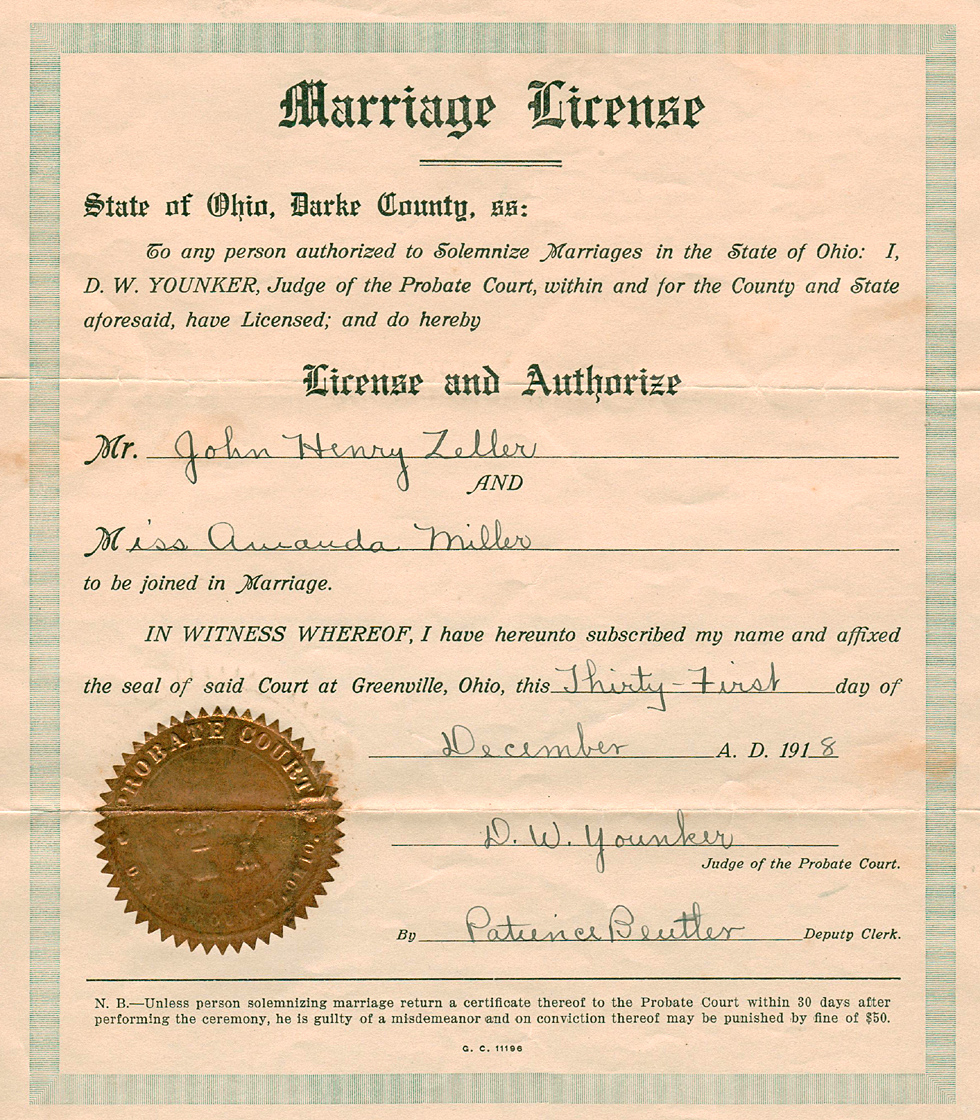 Marriage License
State of Ohio, Darke County, ss:
To any person authorized to Solemnize Marriages in the State of Ohio: I,
D. W. YOUNKER, Judge of the Probate Court, within and for the County and State
aforesaid, have Licensed; and do hereby
License and Authorize
Mr. John Henry Zeller
AND
Miss Amanda Miller
to be joined in Marriage.
IN WITNESS WHEREOF, I have hereunto subscribed my name and affixed
the seal of said Court at Greenville, Ohio, this Thirty-First day of
December A. D. 1918
PROBATE COURT
D. W. Younker
Judge of the Probate Court.
By Patience Beutler Deputy Clerk.
N. B.—Unless person solemnizing marriage return a certificate thereof to the Probate Court within 30 days after
performing the ceremony, he is guilty of a misdemeanor and on conviction thereof may be punished by fine of $50.
G. C. 11196